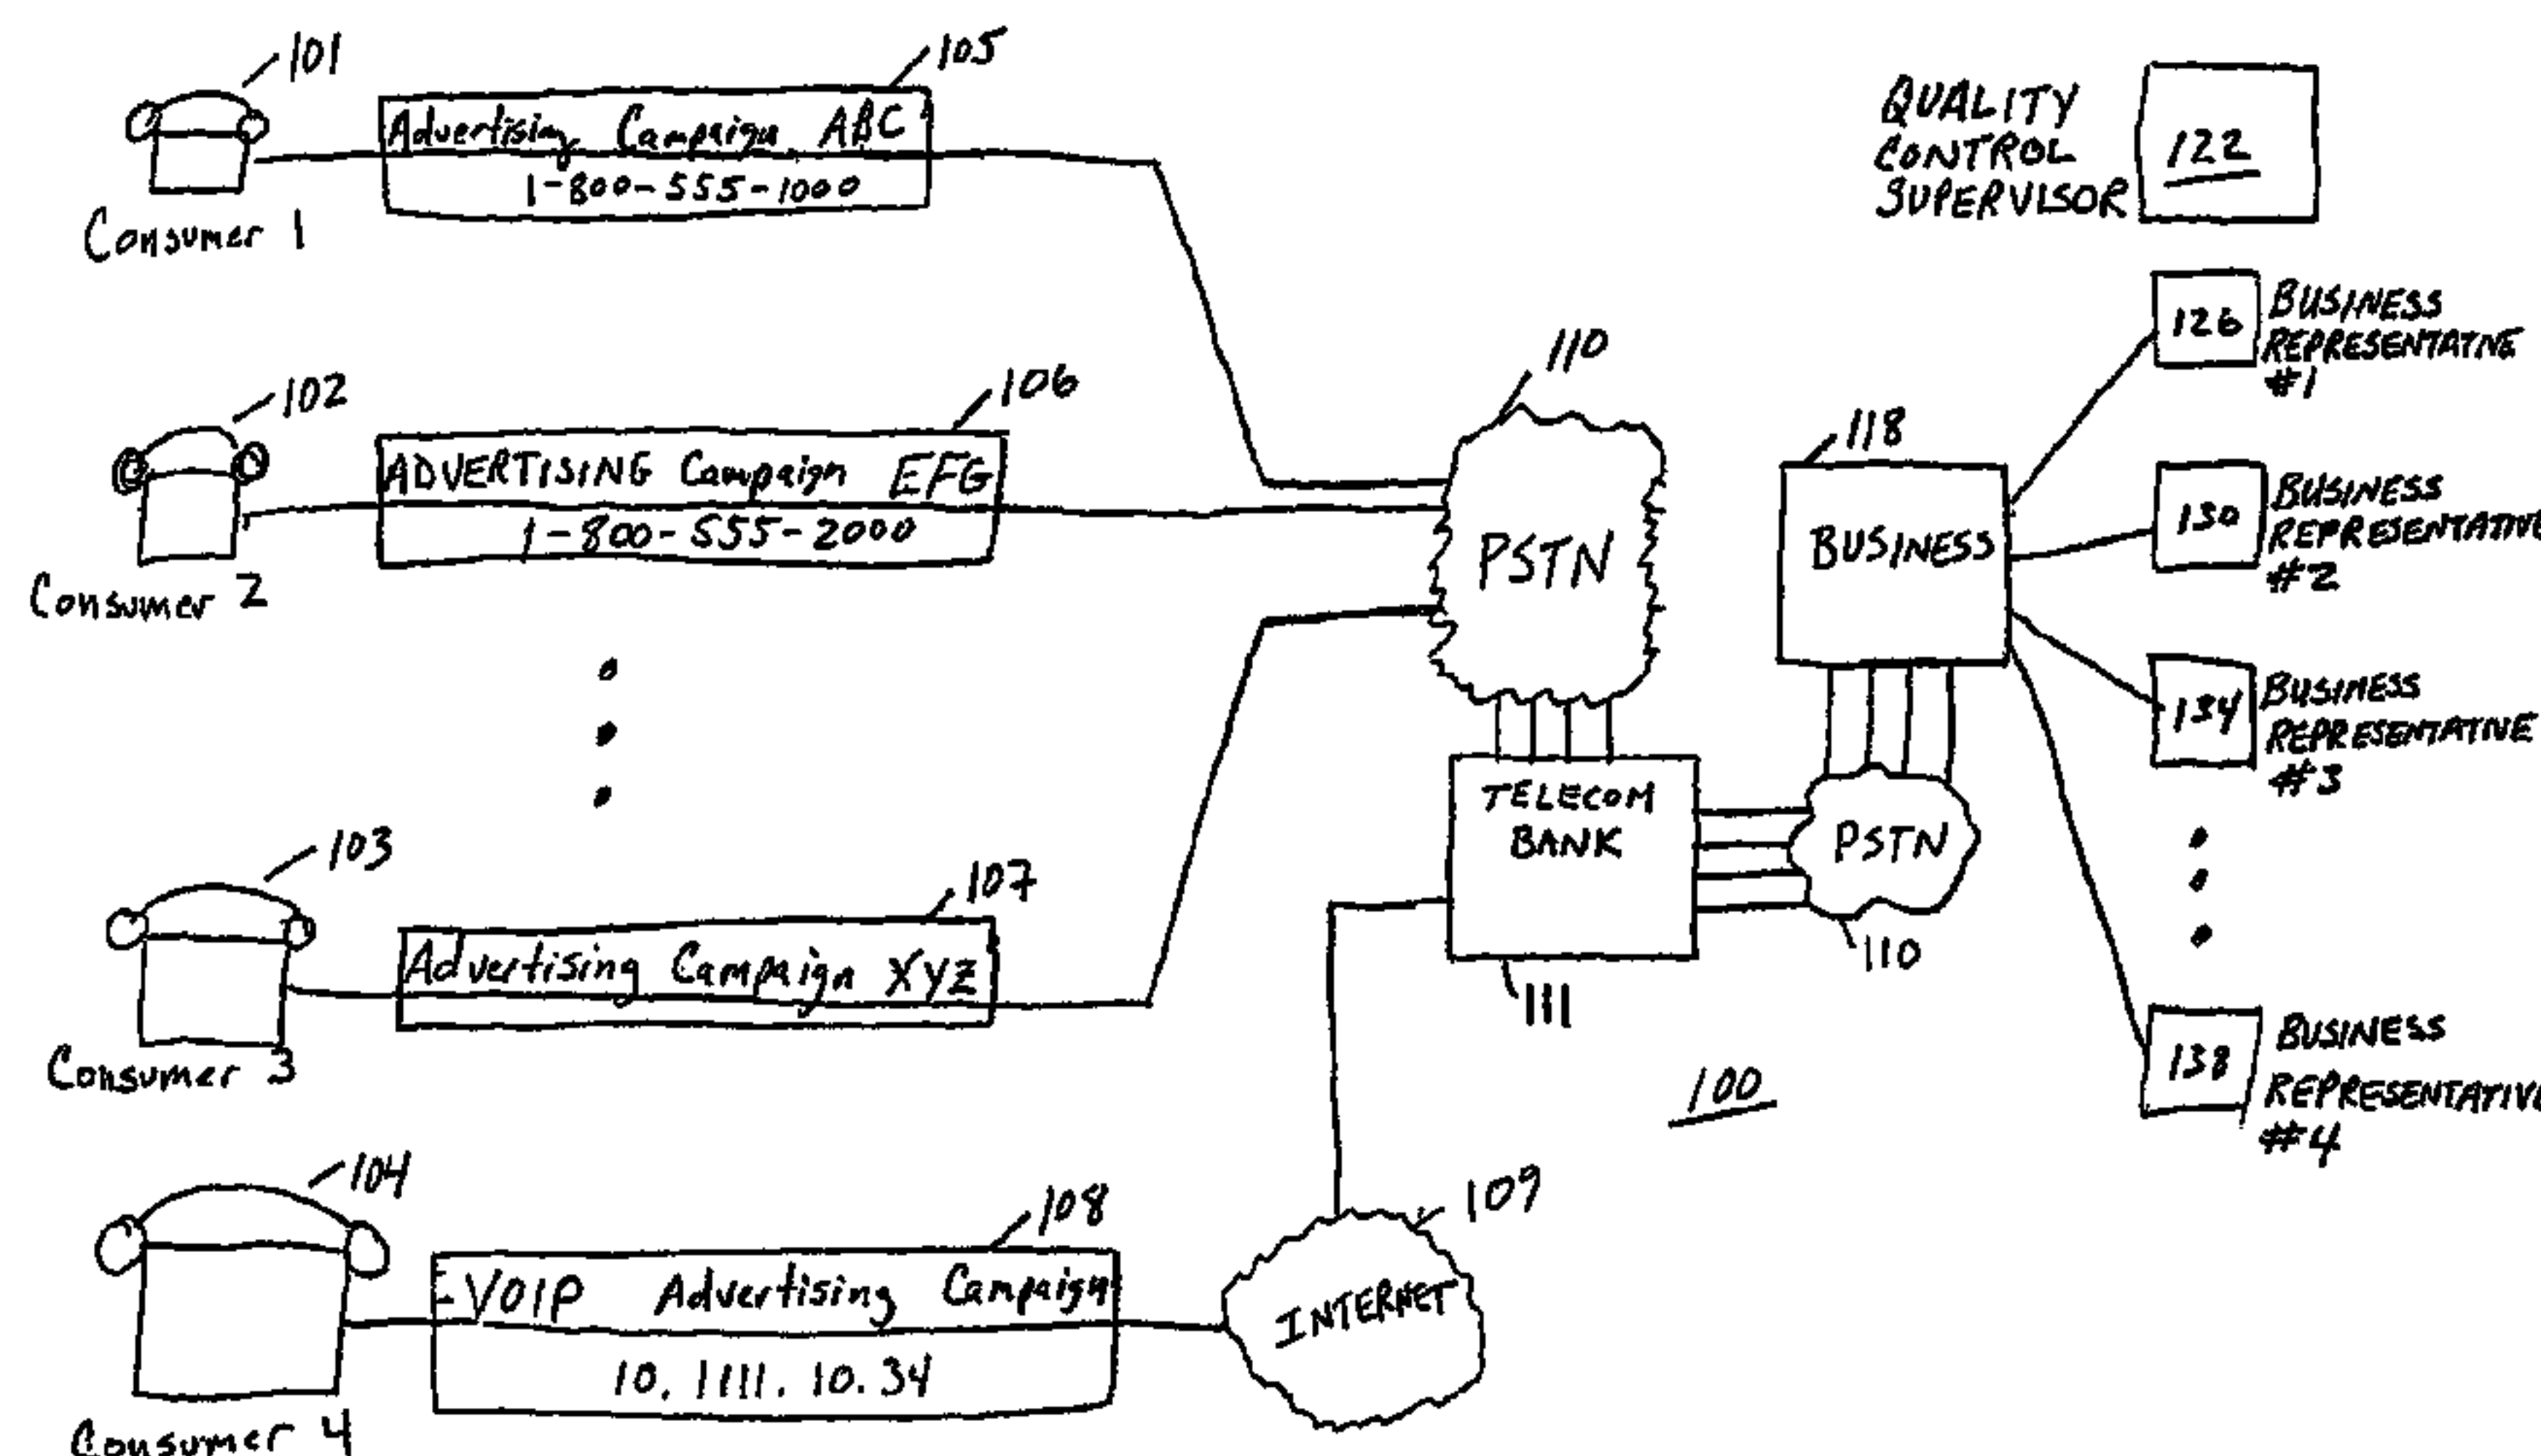 101
Consumer 1
105
Advertising Campaign ABC
1-800-555-1000
102
Consumer 2
106
ADVERTISING Campaign EFG
1-800-555-2000
103
Consumer 3
107
Advertising Campaign XYZ
104
Consumer 4
108
VOIP Advertising Campaign
10.1111.10.34
110
PSTN
TELECOM
BANK
111
PSTN
110
109
INTERNET
100
118
BUSINESS
QUALITY
CONTROL
SUPERVISOR
122
126
BUSINESS
REPRESENTATIVE
#1
130
BUSINESS
REPRESENTATIVE
#2
134
BUSINESS
REPRESENTATIVE
#3
138
BUSINESS
REPRESENTATIVE
#4